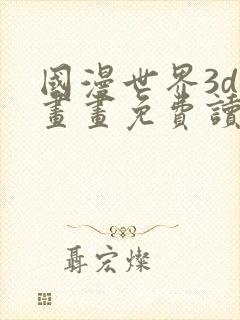 國漫世界3d
畫畫免費讀
聶宏燦